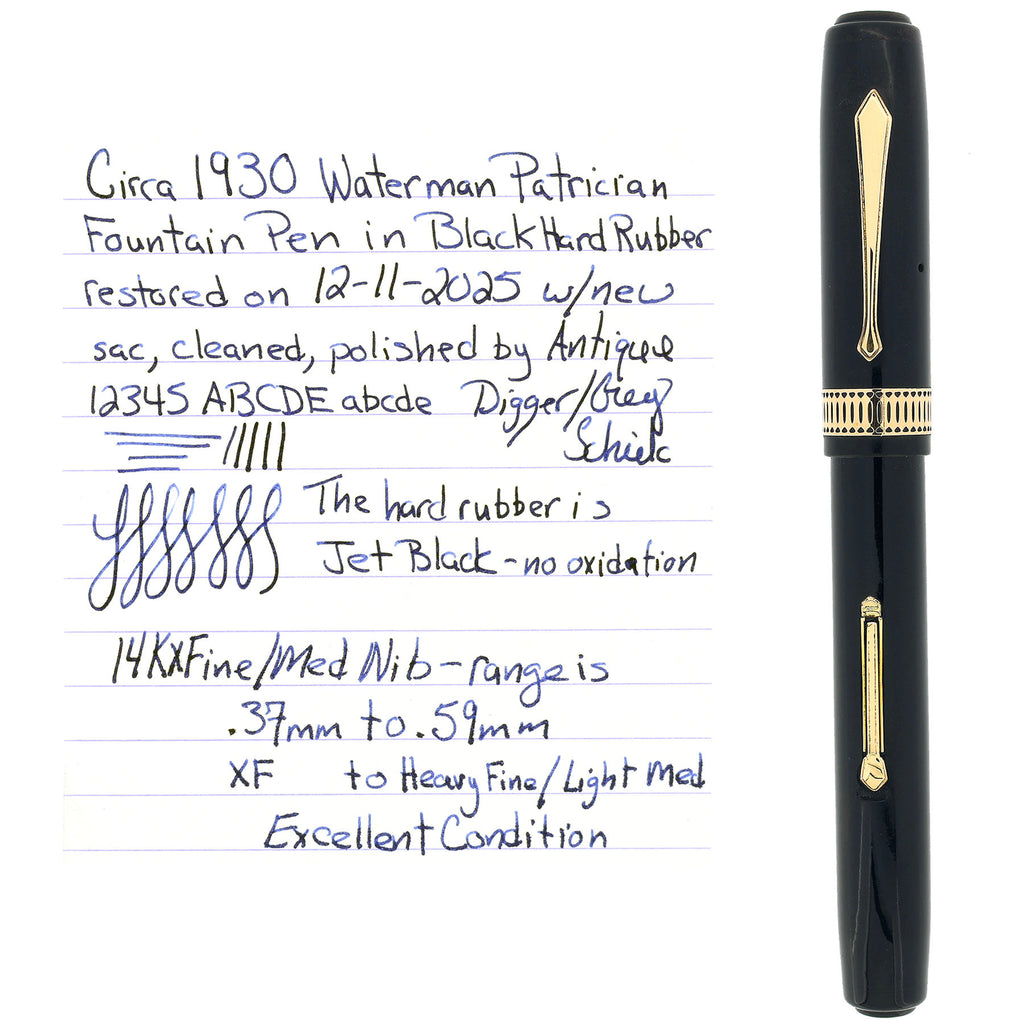 Circa 1930 Waterman Patrician
Fountain Pen in Black Hard Rubber
restored on 12-11-2025 w/new
sac, cleaned, polished by Antique
12345 ABCDE abcde Digger/Grey
The hard rubber is
Jet Black - no oxidation
14K XFine/Med Nib - range is
.37mm to .59mm
XF to Heavy Fine/Light Med
Excellent Condition